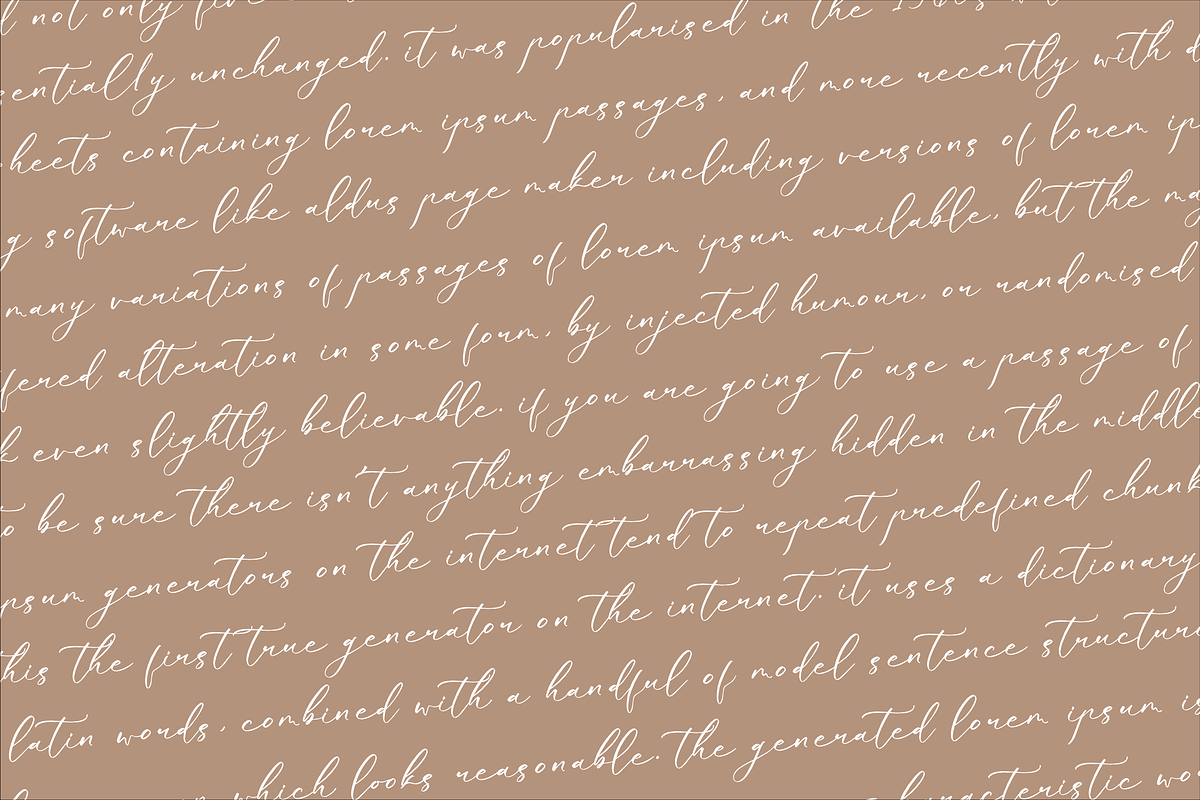 not only five
entially unchanged. it was popularised in the
heets containing lorem ipsum passages, and more recently with d
g software like aldus page maker including versions of lorem ip
many variations of passages of lorem ipsum available, but the ma
fered alteration in some form, by injected humour, or randomised
k even slightly believable. if you are going to use a passage of
to be sure there isn't anything embarrassing hidden in the middle
psum generators on the internet tend to repeat predefined chunk
this the first true generator on the internet. it uses a dictionary
latin words, combined with a handful of model sentence structur
which looks reasonable. the generated lorem ipsum is
haracteristic wo